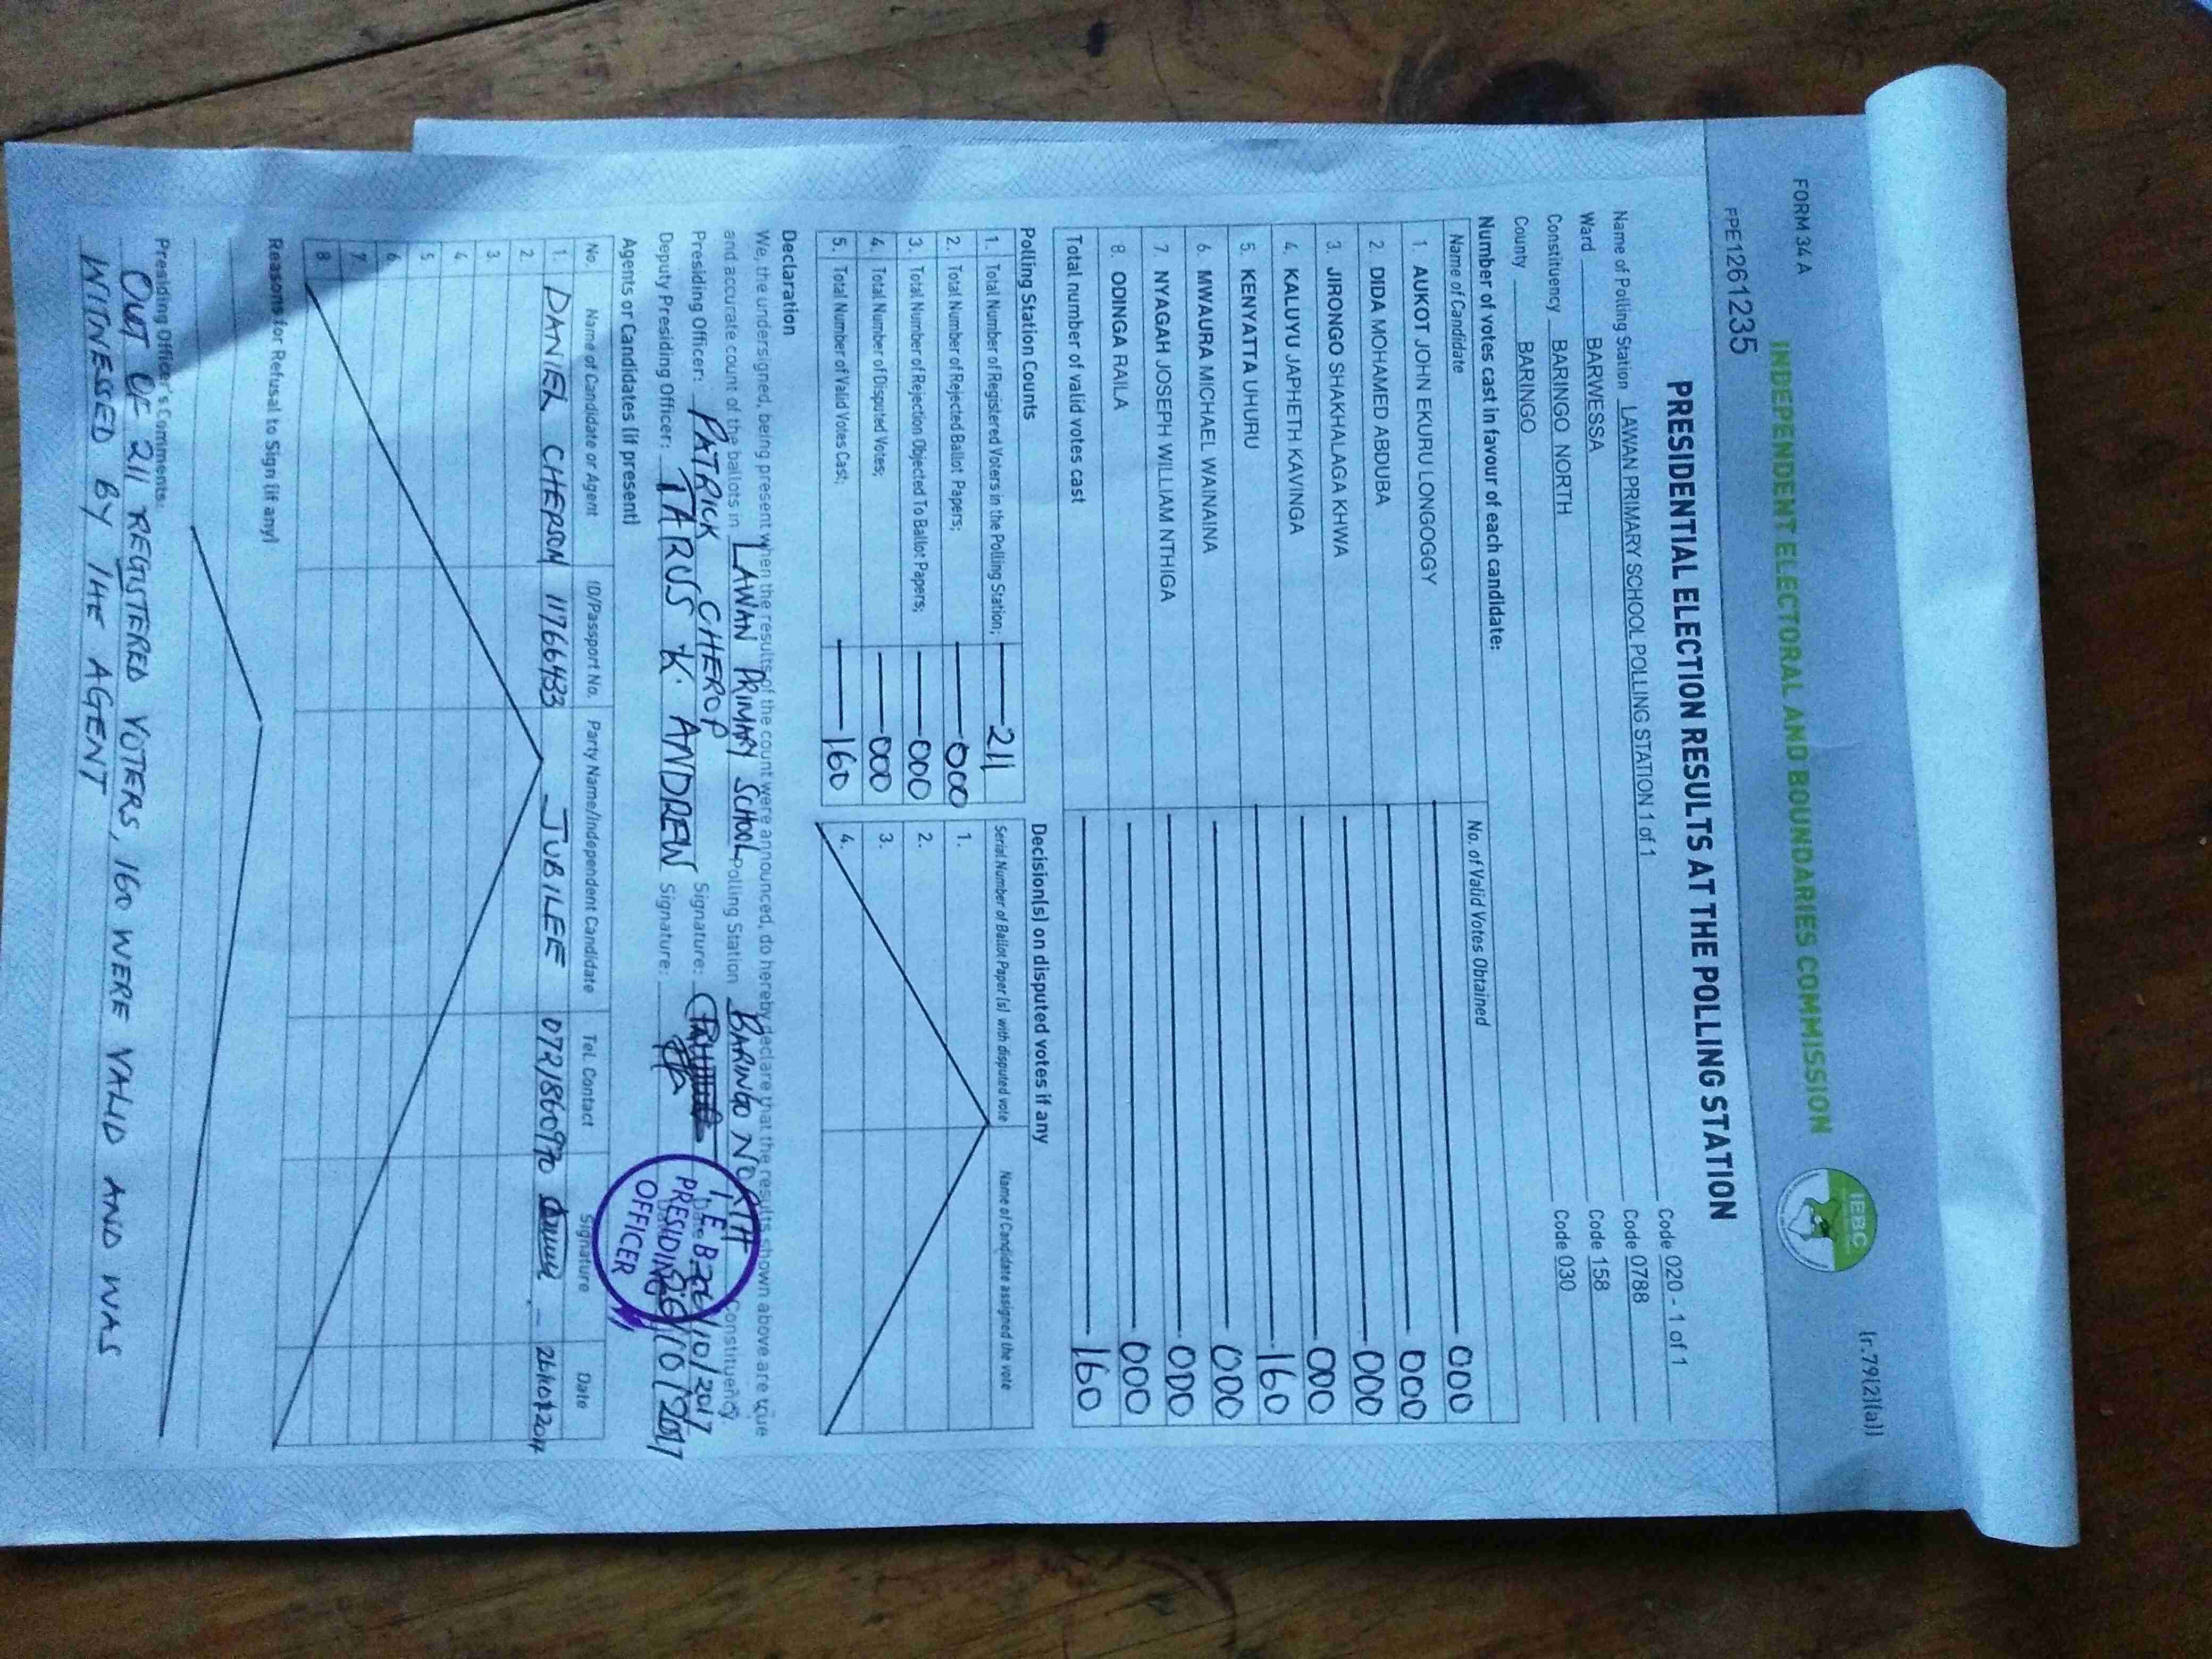 FORM 34 A
(r.79(2)(a))
INDEPENDENT ELECTORAL AND BOUNDARIES COMMISSION
IEBC
PPE1261235
PRESIDENTIAL ELECTION RESULTS AT THE POLLING STATION
Name of Polling Station LAWAN PRIMARY SCHOOL POLLING STATION 1 of 1 Code 020 - 1 of 1
Ward BARWESSA Code 0788
Constituency BARINGO NORTH Code 158
County BARINGO Code 030
Number of votes cast in favour of each candidate:
Name of Candidate No. of Valid Votes Obtained
1. AUKOT JOHN EKURU LONGOGGY 000
2. DIDA MOHAMED ABDUBA 000
3. JIRONGO SHAKHALAGA KHWA 000
4. KALUYU JAPHETH KAVINGA 000
5. KENYATTA UHURU 160
6. MWAURA MICHAEL WAINAINA 000
7. NYAGAH JOSEPH WILLIAM NTHIGA 000
8. ODINGA RAILA 000
Total number of valid votes cast 160
Polling Station Counts
1. Total Number of Registered Voters in the Polling Station; 211
2. Total Number of Rejected Ballot Papers; 000
3. Total Number of Rejection Objected To Ballot Papers; 000
4. Total Number of Disputed Votes; 000
5. Total Number of Valid Votes Cast; 160
Decision(s) on disputed votes if any
Serial Number of Ballot Paper (s) with disputed vote Name of Candidate assigned the vote
1.
2.
3.
4.
Declaration
We, the undersigned, being present when the results of the count were announced, do hereby declare that the results shown above are true
and accurate count of the ballots in LAWAN PRIMARY SCHOOL Polling Station BARINGO NORTH Constituency
Presiding Officer: PATRICK CHEROP Signature: 26/10/2017
Deputy Presiding Officer: TARUS K. ANDREW Signature: 26/10/2017
I E B C
PRESIDING
OFFICER
Agents or Candidates (if present)
No. Name of Candidate or Agent ID/Passport No. Party Name/Independent Candidate Tel. Contact Signature Date
1. DANIEL CHEPSON 11766433 JUBILEE 0721860970 26/10/2017
2.
3.
4.
5.
6.
7.
8.
Reasons for Refusal to Sign (if any)
Presiding Officer's Comments:
OUT OF 211 REGISTERED VOTERS, 160 WERE VALID AND WAS
WITNESSED BY THE AGENT